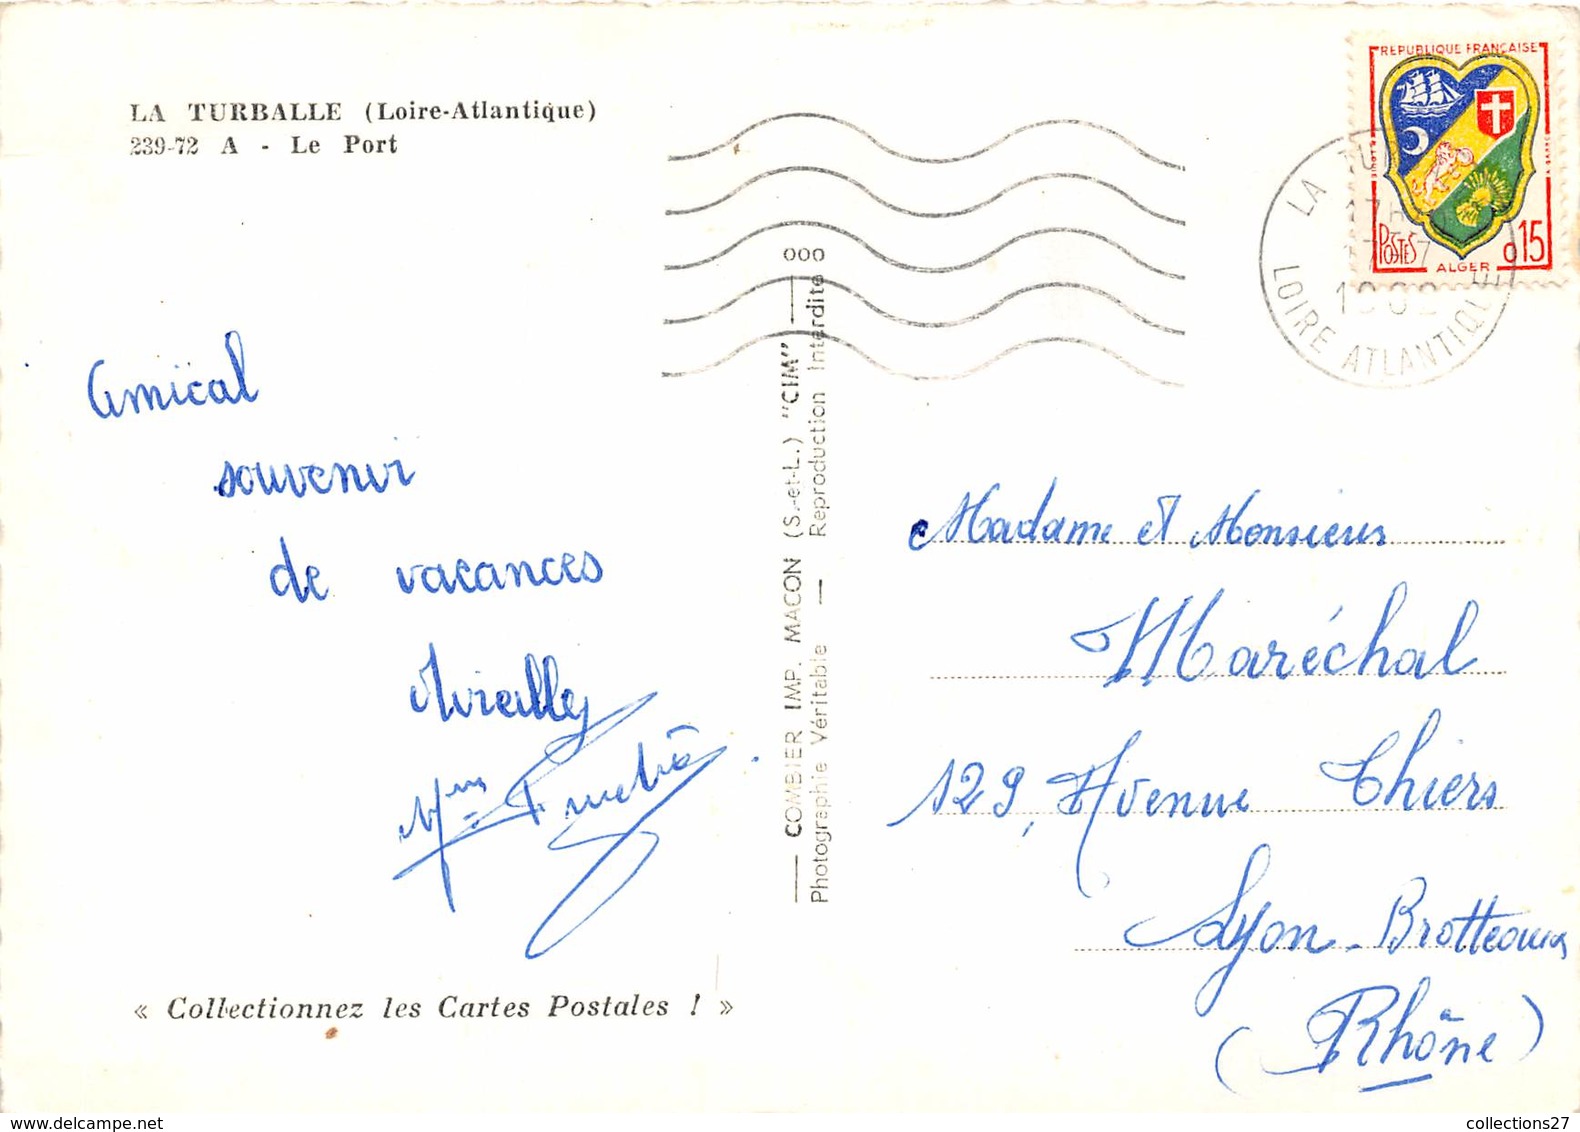 LA TURBALLE (Loire-Atlantique)
239-72 A - Le Port
Amical
souvenir
de vacances
Mireille
Mme
COMBIER IMP. MACON (S.-et-L.) "CIM" — 000
Photographie Véritable — Reproduction Interdite
« Collectionnez les Cartes Postales ! »
REPUBLIQUE FRANÇAISE
POSTES ALGER 0,15
LA TU
17H
LOIRE ATLANTIQUE
Madame et Monsieur
Maréchal
129, Avenue Thiers
Lyon-Brotteaux
(Rhône)
collections27